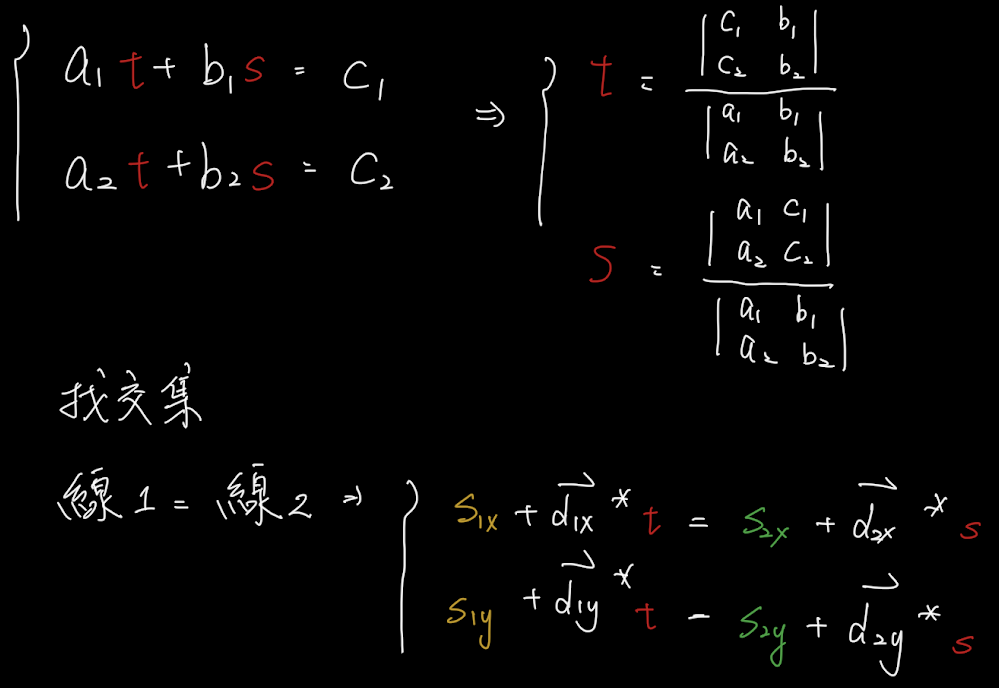 a₁ t + b₁ s = c₁
a₂ t + b₂ s = c₂
⇒
t = | c₁ b₁ |
| c₂ b₂ |
| a₁ b₁ |
| a₂ b₂ |
s = | a₁ c₁ |
| a₂ c₂ |
| a₁ b₁ |
| a₂ b₂ |
找交集
線1 = 線2 ⇒
s₁ₓ + d⃗₁ₓ * t = s₂ₓ + d⃗₂ₓ * s
s₁y + d⃗₁y * t = s₂y + d⃗₂y * s